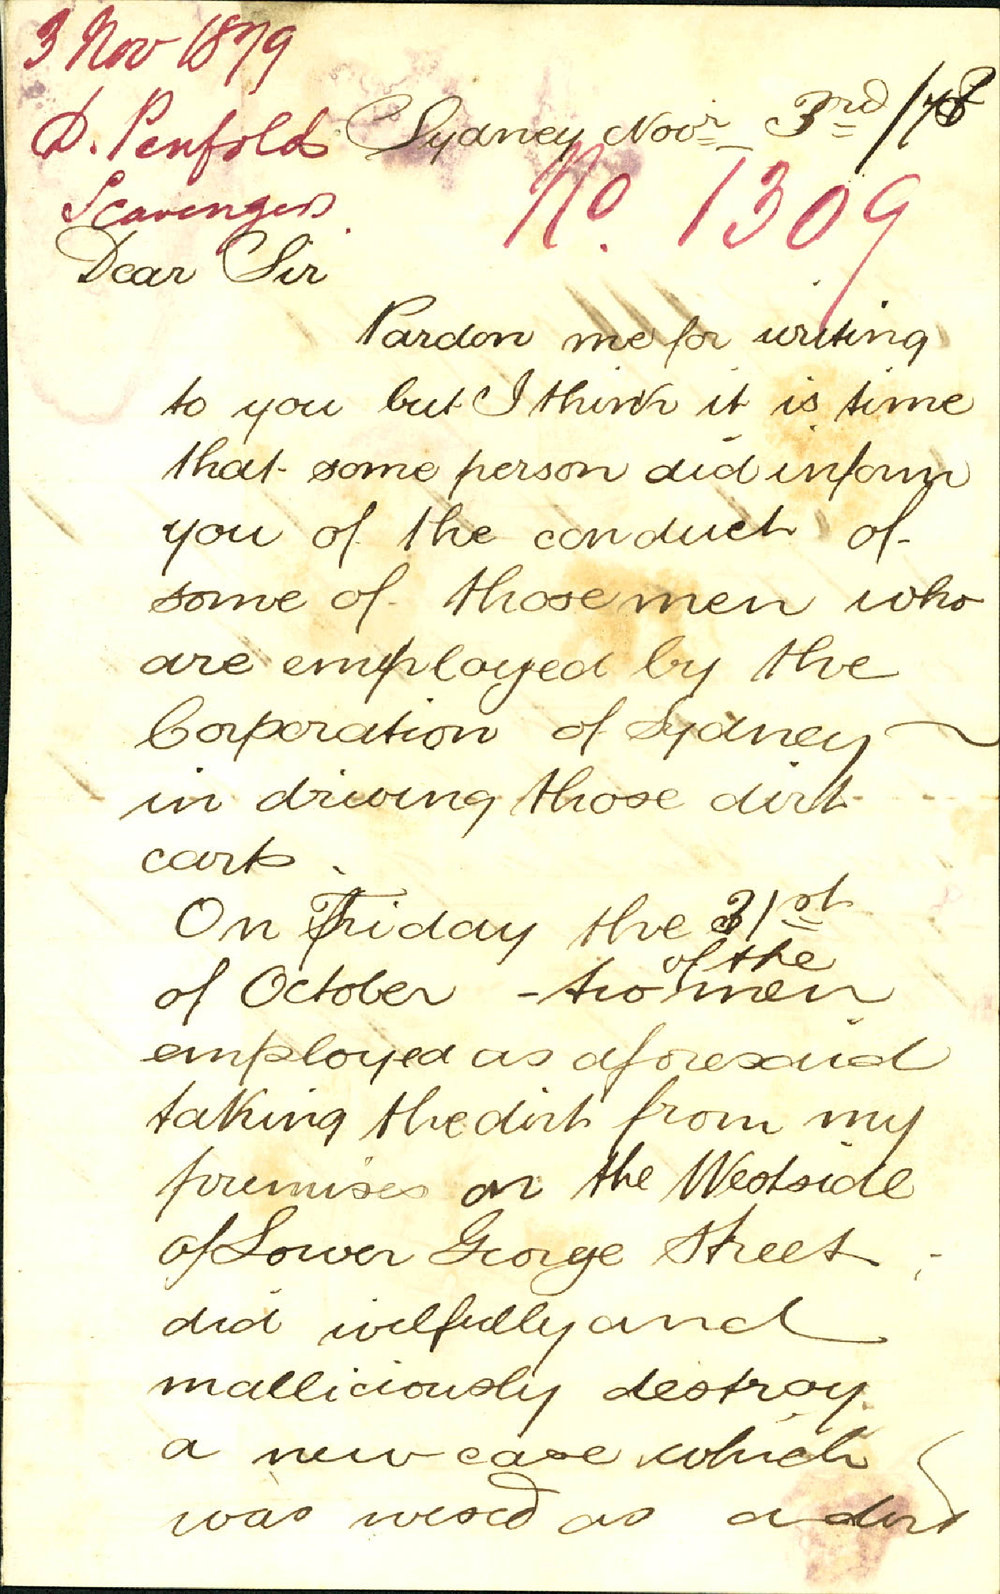 3 Nov 1879
D. Penfold
Scavengers
Sydney Novr 3rd /78
No. 1309
Dear Sir
Pardon me for writing
to you but I think it is time
that some person did inform
you of the conduct of
some of those men who
are employed by the
Corporation of Sydney
in driving those dirt
carts.
On Friday the 31st
of October - two of the men
employed as aforesaid
taking the dirt from my
premises on the Westside
of Lower George Street
did wilfully and
malliciously destroy
a new case which
was wesed as a dirt